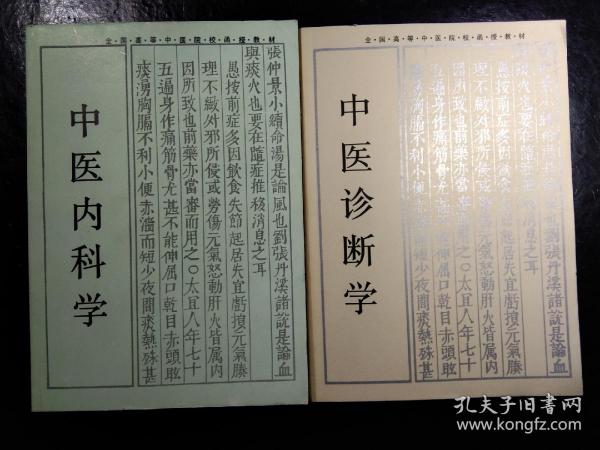 全·国·高·等·中·医·院·校·函·授·教·材
中医内科学
張仲景小續命湯是論風也劉張丹溪諸說是論血
與痰火也要在隨症推移消息之耳
愚按前症多因飲食失節起居失宜虧損元氣腠
理不緻外邪所侵或勞傷元氣怒動肝火皆属内
因所致也前藥亦當審而用之〇太宜人年七十
五遍身作痛筋骨尤甚不能伸属口乾目赤頭眩
痰湧胸膈不利小便赤澁而短少夜間痰熱殊甚
全·国·高·等·中·医·院·校·函·授·教·材
中医诊断学
張丹溪諸說是論血
消息之耳
愚按前症多因飲食失節起居失宜虧損元氣腠
理不緻外邪所侵或勞傷元氣怒動肝火皆属内
因所致也前藥亦當審而用之〇太宜人年七十
五遍身作痛筋骨尤甚不能伸属口乾目赤頭眩
痰湧胸膈不利小便赤澁而短少夜間痰熱殊甚
孔夫子旧书网
www.kongfz.com